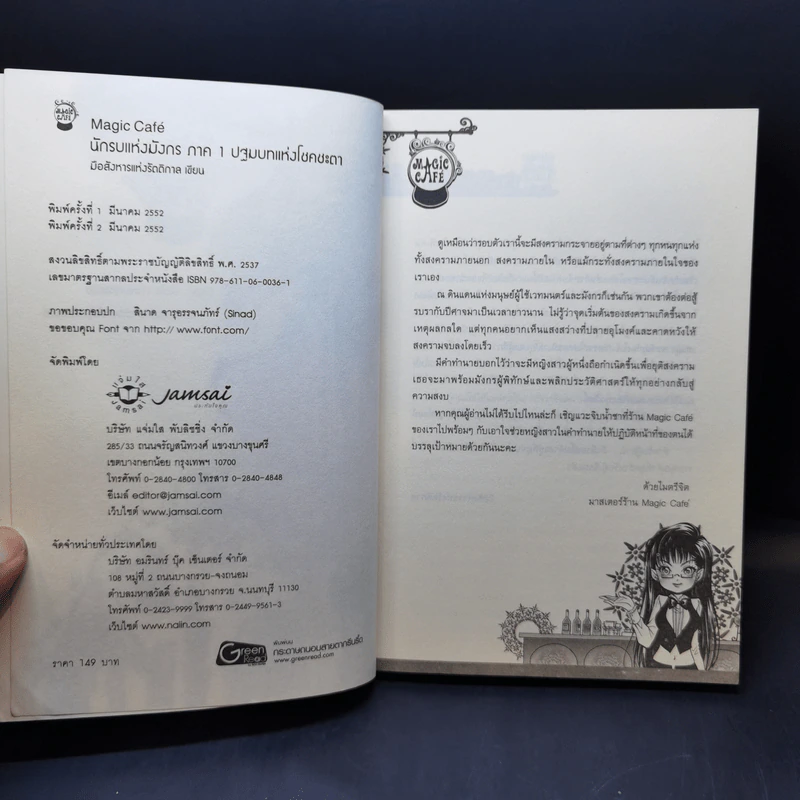 MAGIC CAFÉ
Magic Café
นักรบแห่งมังกร ภาค 1 ปฐมบทแห่งโชคชะตา
มือสังหารแห่งรัตติกาล เขียน
พิมพ์ครั้งที่ 1 มีนาคม 2552
พิมพ์ครั้งที่ 2 มีนาคม 2552
สงวนลิขสิทธิ์ตามพระราชบัญญัติลิขสิทธิ์ พ.ศ. 2537
เลขมาตรฐานสากลประจำหนังสือ ISBN 978-611-06-0036-1
ภาพประกอบปก สินาด จารุอรรจนภัทร์ (Sinad)
ขอขอบคุณ Font จาก http://www.font.com/
จัดพิมพ์โดย
แจ่มใส jamsai
jamsai
บริษัท แจ่มใส พับลิชชิ่ง จำกัด
285/33 ถนนจรัญสนิทวงศ์ แขวงบางขุนศรี
เขตบางกอกน้อย กรุงเทพฯ 10700
โทรศัพท์ 0-2840-4800 โทรสาร 0-2840-4848
อีเมล์ editor@jamsai.com
เว็บไซต์ www.jamsai.com
จัดจำหน่ายทั่วประเทศโดย
บริษัท อมรินทร์ บุ๊ค เซ็นเตอร์ จำกัด
108 หมู่ที่ 2 ถนนบางกรวย-จงถนอม
ตำบลมหาสวัสดิ์ อำเภอบางกรวย จ.นนทบุรี 11130
โทรศัพท์ 0-2423-9999 โทรสาร 0-2449-9561-3
เว็บไซต์ www.naiin.com
ราคา 149 บาท
Green Read
พิมพ์บน
กระดาษถนอมสายตากรีนรี้ด
www.greenread.com
MAGIC CAFÉ
ดูเหมือนว่ารอบตัวเรานี้จะมีสงครามกระจายอยู่ตามที่ต่างๆ ทุกหนทุกแห่ง
ทั้งสงครามภายนอก สงครามภายใน หรือแม้กระทั่งสงครามภายในใจของ
เราเอง
ณ ดินแดนแห่งมนุษย์ผู้ใช้เวทมนตร์และมังกรก็เช่นกัน พวกเขาต้องต่อสู้
รบรากับปีศาจมาเป็นเวลายาวนาน ไม่รู้ว่าจุดเริ่มต้นของสงครามเกิดขึ้นจาก
เหตุผลกลใด แต่ทุกคนอยากเห็นแสงสว่างที่ปลายอุโมงค์และคาดหวังให้
สงครามจบลงโดยเร็ว
มีคำทำนายบอกไว้ว่าจะมีหญิงสาวผู้หนึ่งถือกำเนิดขึ้นเพื่อยุติสงคราม
เธอจะมาพร้อมมังกรผู้พิทักษ์และพลิกประวัติศาสตร์ให้ทุกอย่างกลับสู่
ความสงบ
หากคุณผู้อ่านไม่ได้รีบไปไหนล่ะก็ เชิญแวะจิบน้ำชาที่ร้าน Magic Café
ของเราไปพร้อมๆ กับเอาใจช่วยหญิงสาวในคำทำนายให้ปฏิบัติหน้าที่ของตนได้
บรรลุเป้าหมายด้วยกันนะคะ
ด้วยไมตรีจิต
มาสเตอร์ร้าน Magic Café